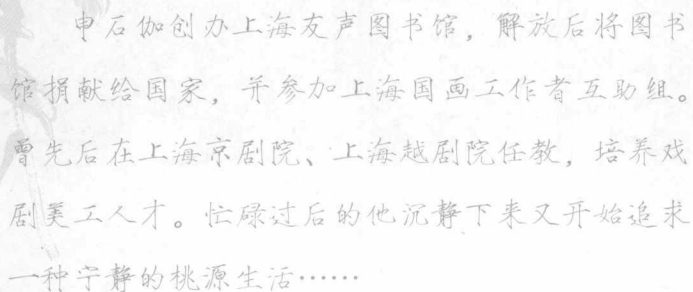 申石伽创办上海友声图书馆，解放后将图书
馆捐献给国家，并参加上海国画工作者互助组。
曾先后在上海京剧院、上海越剧院任教，培养戏
剧美工人才。忙碌过后的他沉静下来又开始追求
一种宁静的桃源生活……